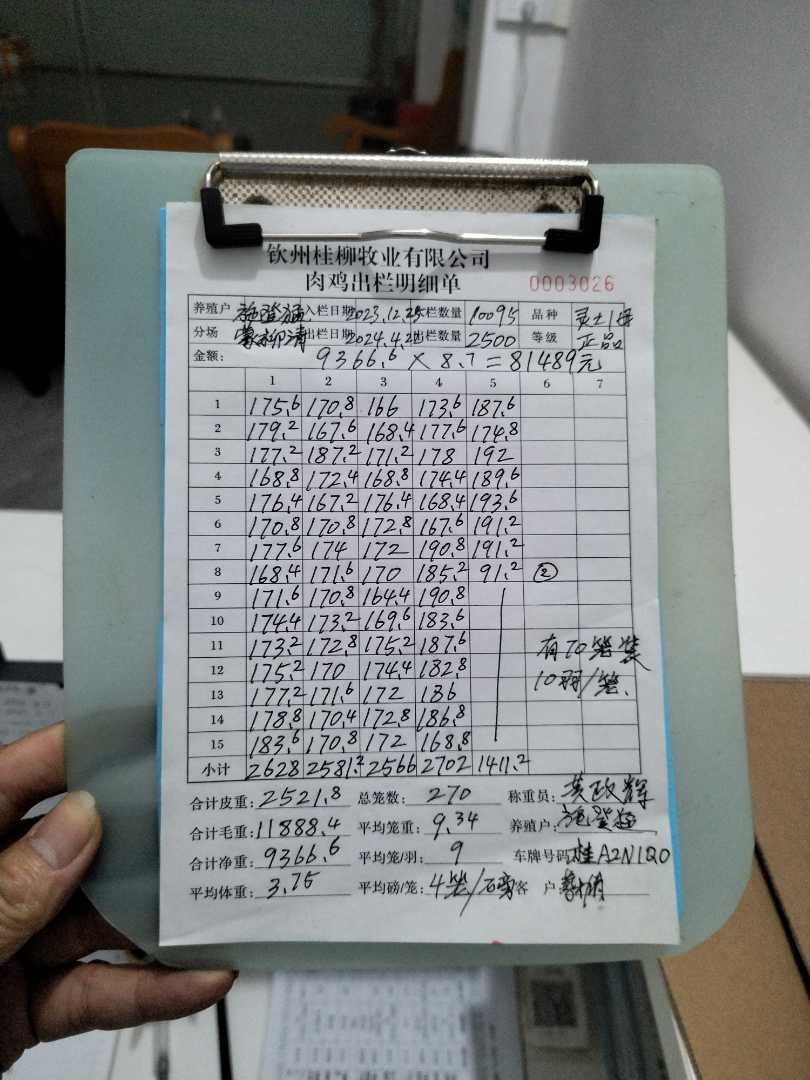 钦州桂柳牧业有限公司
肉鸡出栏明细单 0003026
养殖户 施登猛 入栏日期 2023.12.25 入栏数量 10095 品种 灵土1号
分场 蒙柳清 出栏日期 2024.4.22 出栏数量 2500 等级 正品
金额: 9366.6 × 8.7 = 81489元
1 2 3 4 5 6 7
1 175.6 170.8 166 173.6 187.6
2 179.2 167.6 168.4 177.6 174.8
3 177.2 187.2 171.2 178 192
4 168.8 172.4 168.8 174.4 189.6
5 176.4 167.2 176.4 168.4 193.6
6 170.8 170.8 172.8 167.6 191.2
7 177.6 174 172 190.8 191.2
8 168.4 171.6 170 185.2 91.2 ②
9 171.6 170.8 164.4 190.8
10 174.4 173.2 169.6 183.6
11 173.2 172.8 175.2 187.6 有70笼装
12 175.2 170 174.4 182.8 10羽/笼、
13 177.2 171.6 172 186
14 178.8 170.4 172.8 186.8
15 183.6 170.8 172 168.8
小计 2628 2581.2 2566 2702 1411.2
合计皮重: 2521.8 总笼数: 270 称重员: 黄政辉
合计毛重: 11888.4 平均笼重: 9.34 养殖户: 施登猛
合计净重: 9366.6 平均笼/羽: 9 车牌号码: 桂A2N1Q0
平均体重: 3.75 平均磅/笼: 4笼/磅 客 户: